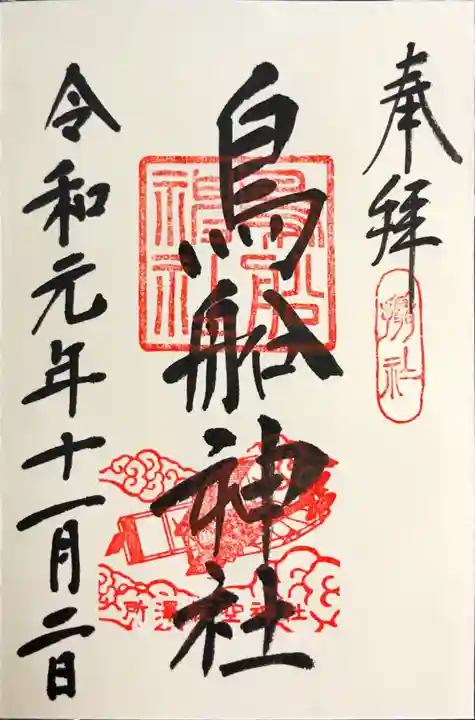 奉拝
摂社
鳥船神社
鳥船
神社
所澤航空神社
令和元年十一月二日